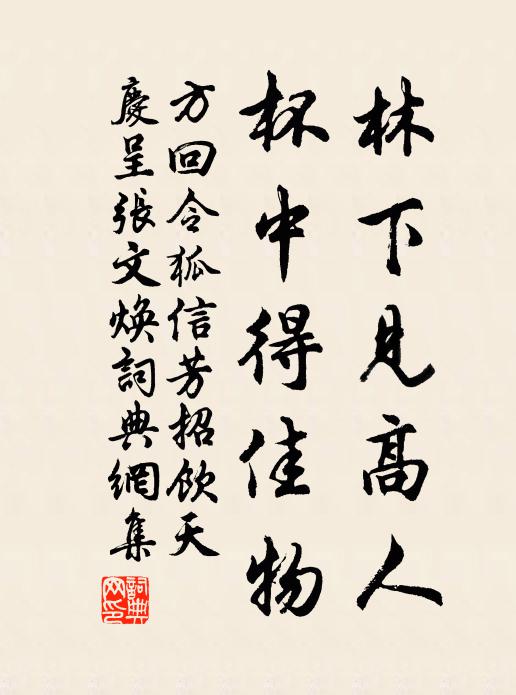 林下見高人
杯中得佳物
方回令狐信芳招飲天
慶呈張文煥詞典網集
詞典網印